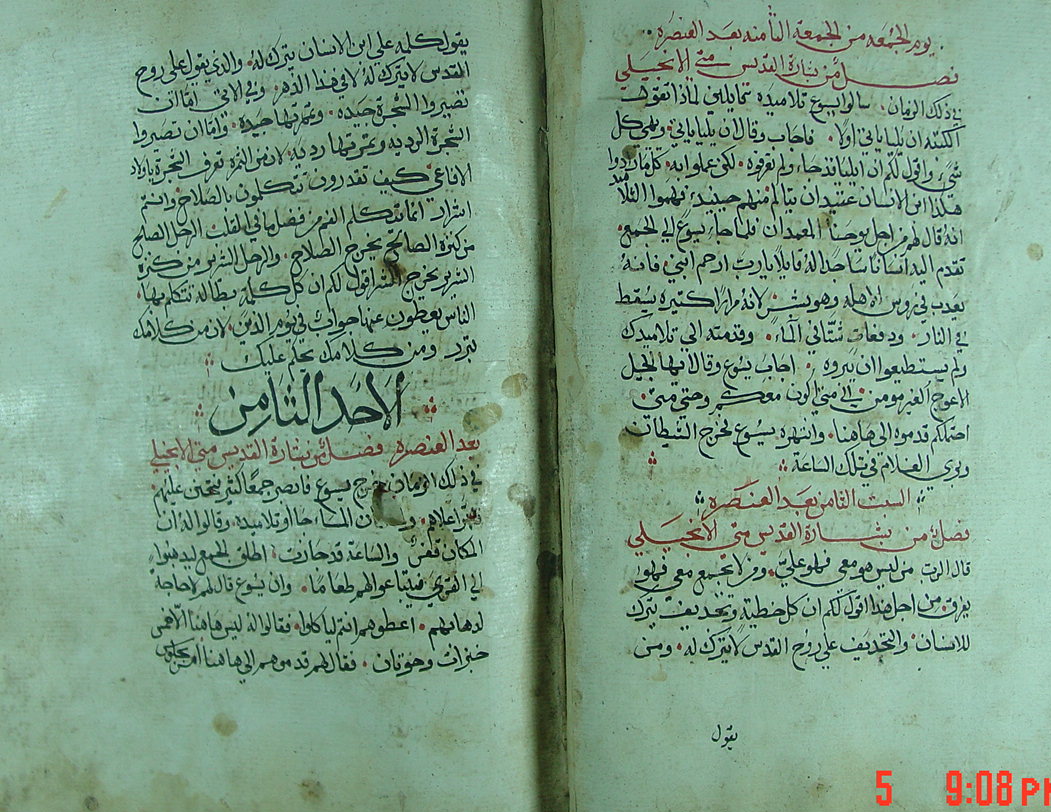 يوم الجمعه من الجمعة الثامنه بعد العنصره
فصل من بشارة القديس متى الانجيلي
في ذلك الزمان سالوا يسوع تلاميذه قايلين لماذا تقول
الكتبه ان يليا ياتي اولا فاجاب وقال ان يليا ياتي ويهي كل
شي واقول لكم ان ايليا قد جا ولم يعرفوه لكن عملوا به كلما ارادوا
هكذا ابن الانسان عتيد ان يتالم منهم حينيذ فهموا التلاميذ
انه قال لهم من اجل يوحنا المعمدان فلما جا يسوع الي الجمع
تقدم اليه انسانا ساجدا له قايلا يا رب ارحم ابني فانه
يعذب في روس الاهله وهو بشر لانه مرارا كثيره يسقط
في النار ودفعات شتى في الما وقدمته الي تلاميذك
ولم يستطيعوا ان يبروه اجاب يسوع وقال ايها الجيل
الاعوج الغير مومن الي متي اكون معكم وحتي متي
احتملكم قدموه الي هاهنا وانتهره يسوع فخرج الشيطان
وبري الغلام في تلك الساعة
السبت الثامن بعد العنصره
فصل من بشارة القديس متى الانجيلي
قال الرب من ليس هو معي فهو علي ومن لا يجمع معي فهوا
يفرق من اجل هذا اقول لكم ان كل خطية وتجديف يترك
للانسان والتجديف علي روح القدس لا يترك له ومن
يقول
يقول كلمه علي ابن الانسان يترك له والذي يقول علي روح
القدس لا يترك له لا في هذا الدهر ولا في الاتي اما ان
تصيروا الشجرة جيده وثمرتها جيده واما ان تصيروا
الشجرة الرديه وثمرتها رديه لان من الثمره تعرف الشجرة يا اولاد
الافاعي كيف تقدرون تتكلمون بالصلاح وانتم
اشرار انما يتكلم الفم من فضل ما في القلب الرجل الصالح
من كنزه الصالح يخرج الصلاح والرجل الشرير من كنزه
الشرير يخرج الشر اقول لكم ان كل كلمه بطاله تتكلم بها
الناس يعطون عنها جواب في يوم الدين لان من كلامك
تبرر ومن كلامك يحكم عليك
الاحد الثامن
بعد العنصره فصل من بشارة القديس متى الانجيلي
في ذلك الزمان خرج يسوع فابصر جمعا كثير فتحنن عليهم
وابرا اعلاهم المسا جااوا تلاميذه وقالوا له ان
المكان قفر والساعة قد جازت اطلق الجمع ليذهبوا
الي القرى فيبتاعوا لهم طعاما وان يسوع قال لهم لا حاجة
لذهابهم اعطوهم انتم لياكلوا فقالوا له ليس هاهنا الا خمس
خبزات وحوتان فقال لهم قدموهم الي هاهنا
5 9:08 PM